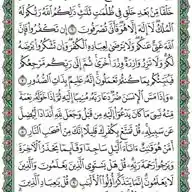 خَلْقًا مِّنۢ بَعْدِ خَلْقٍ فِى ظُلُمَٰتٍ ثَلَٰثٍ ذَٰلِكُمُ ٱللَّهُ رَبُّكُمْ لَهُ
ٱلْمُلْكُ لَآ إِلَٰهَ إِلَّا هُوَ فَأَنَّىٰ تُصْرَفُونَ ٦ إِن تَكْفُرُوا۟ فَإِنَّ
ٱللَّهَ غَنِىٌّ عَنكُمْ وَلَا يَرْضَىٰ لِعِبَادِهِ ٱلْكُفْرَ وَإِن تَشْكُرُوا۟ يَرْضَهُ
لَكُمْ وَلَا تَزِرُ وَازِرَةٌ وِزْرَ أُخْرَىٰ ثُمَّ إِلَىٰ رَبِّكُم مَّرْجِعُكُمْ
فَيُنَبِّئُكُم بِمَا كُنتُمْ تَعْمَلُونَ إِنَّهُۥ عَلِيمٌۢ بِذَاتِ ٱلصُّدُورِ ٧
۞ وَإِذَا مَسَّ ٱلْإِنسَٰنَ ضُرٌّ دَعَا رَبَّهُۥ مُنِيبًا إِلَيْهِ ثُمَّ إِذَا خَوَّلَهُۥ نِعْمَةً
مِّنْهُ نَسِىَ مَا كَانَ يَدْعُوٓا۟ إِلَيْهِ مِن قَبْلُ وَجَعَلَ لِلَّهِ أَندَادًا لِّيُضِلَّ
عَن سَبِيلِهِۦ قُلْ تَمَتَّعْ بِكُفْرِكَ قَلِيلًا إِنَّكَ مِنْ أَصْحَٰبِ ٱلنَّارِ ٨
أَمَّنْ هُوَ قَٰنِتٌ ءَانَآءَ ٱلَّيْلِ سَاجِدًا وَقَآئِمًا يَحْذَرُ ٱلْءَاخِرَةَ
وَيَرْجُوا۟ رَحْمَةَ رَبِّهِۦ قُلْ هَلْ يَسْتَوِى ٱلَّذِينَ يَعْلَمُونَ وَٱلَّذِينَ
لَا يَعْلَمُونَ إِنَّمَا يَتَذَكَّرُ أُو۟لُوا۟ ٱلْأَلْبَٰبِ ٩ قُلْ يَٰعِبَادِ